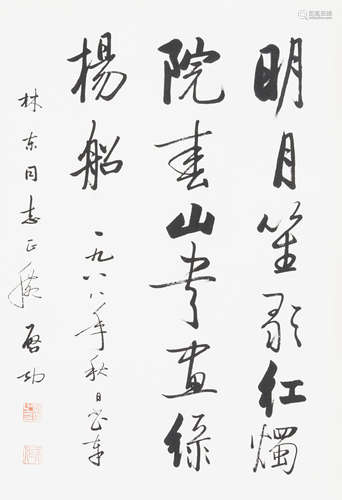 明月笙歌红燭
院春山書畫緑
楊船 一九八八年秋日書奉
林东同志正 啓功